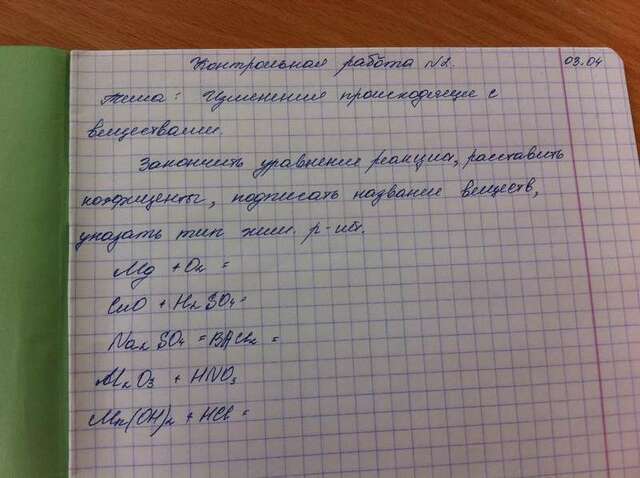 Контрольная работа №2. 03.04
Тема: Изменения происходящие с
веществами.
Закончить уравнение реакции, расставить
коэфиценты, подписать название веществ,
указать тип хим. р-ии.
Mg + O₂ =
CuO + H₂SO₄ =
Na₂SO₄ = BACl₂ =
Al₂O₃ + HNO₃
Mn(OH)₂ + HCl =